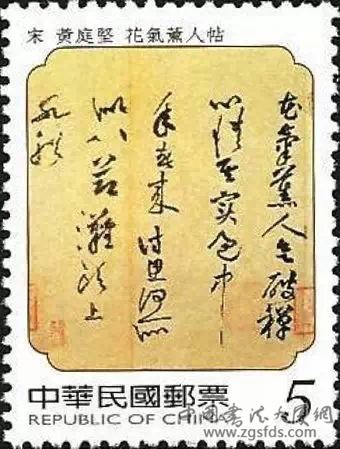 宋 黃庭堅 花氣薰人帖
花氣薰人欲破禪
心情其實過中
年春來詩思何所
似八節灘頭上
水船
中華民國郵票 5
REPUBLIC OF CHINA
www.zgsfds.com